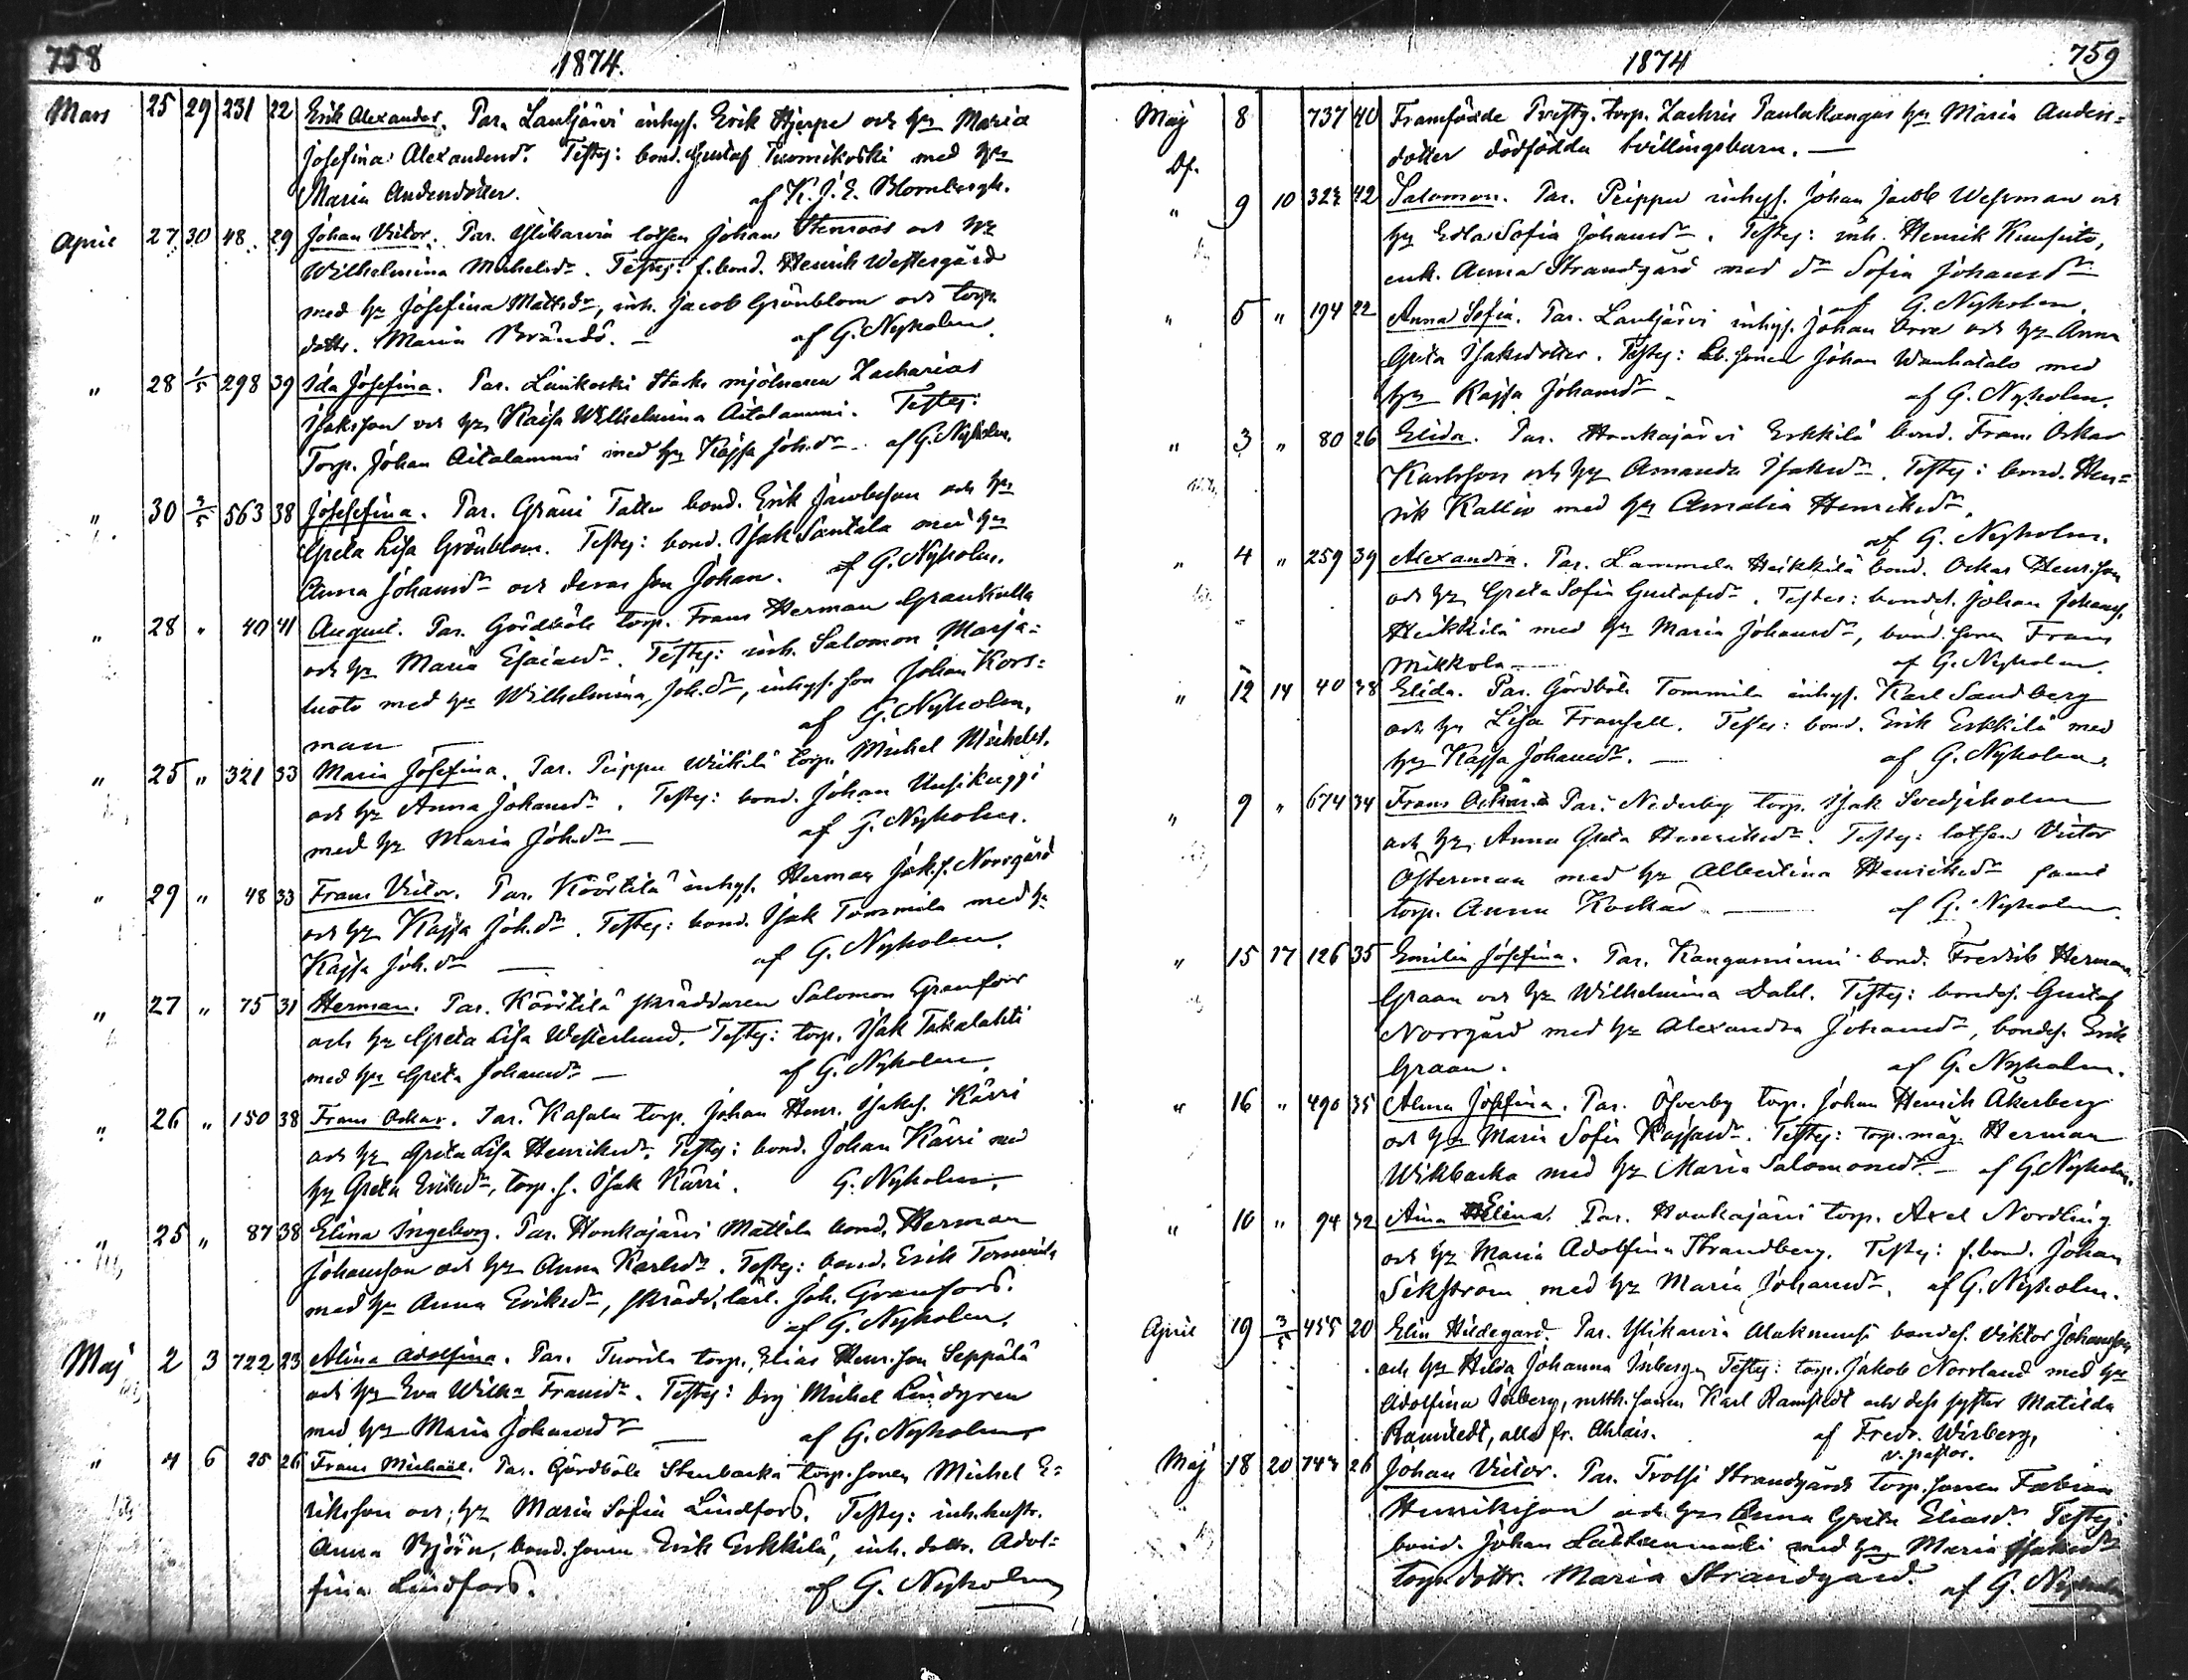 758
1874.
Mars 25 29 231 22 Erik Alexander. Par. Lautjärvi inhys. Erik Hjerpe och hu Maria
Josefina Alexandersd. Testes: bond. Gustaf Tuomikoski med hu
Maria Andersdotter. af K. J. E. Blombergh.
April 27 30 48 29 Johan Victor. Par. Ylikarvia lotsen Johan Stenroos och hu
Wilhelmina Michelsdr. Testes: f. bond. Henrik Westergård
med hu Josefina Mattsdr, inh. Jacob Grönblom och torp.
dottr. Maria Brändö. — af G. Nyholm.
" 28 1/5 298 39 Ida Josefina. Par. Lankoski mjölnaren Zacharias
Isaksson och hu Kaisa Wilhelmina Aitalammi. Testes:
Torp. Johan Aitalammi med hu Kajsa Joh.dr. af G. Nyholm.
" 30 3/5 563 38 Josefina. Par. Gräni bond. Erik Jacobsson och hu
Greta Lisa Grönblom. Testes: bond. Isak Santala med hu
Anna Johansdr och deras son Johan. af G. Nyholm.
" 28 " 40 41 August. Par. Gårdböle torp. Frans Herman Grankulla
och hu Maria Esaiasdr. Testes: inh. Salomon Marja=
luoto med hu Wilhelmina Joh.dr, inhys. son Johan Kors=
man af G. Nyholm.
" 25 " 321 33 Maria Josefina. Par. Peippu Wiikilä torp. Michel Michelss.
och hu Anna Johansdr. Testes: bond. Johan Uusikuggi
med hu Maria Joh.dr — af G. Nyholm.
" 29 " 48 33 Frans Victor. Par. Köörtilä inhys. Herman Joh.s. Norrgård
och hu Kajsa Joh.dr. Testes: bond. Isak Tommila med hu
Kajsa Joh.dr — af G. Nyholm.
" 27 " 75 31 Herman. Par. Köörtilä skräddaren Salomon Granfors
och hu Greta Lisa Westerlund. Testes: torp. Isak Takalahti
med hu Greta Johansdr — af G. Nyholm.
" 26 " 150 38 Frans Oskar. Par. Kasala torp. Johan Henr. Isakss. Kärri
och hu Greta Lisa Henriksdr. Testes: bond. Johan Kärri med
hu Greta Eriksdr, torp. s. Isak Kärri. G. Nyholm.
" 25 " 87 38 Elina Ingeborg. Par. Honkajärvi Mattila bond. Herman
Johansson och hu Anna Karlsdr. Testes: bond. Erik Tommila
med hu Anna Eriksdr, skrädd. lärl. Joh. Granfors.
af G. Nyholm.
Maj 2 3 722 23 Alina Adolfina. Par. Tuorila torp. Elias Henr.son Seppälä
och hu Eva Wilh:a Fransdr. Testes: Michel Lindgren
med hu Maria Johansdr — af G. Nyholm
" 4 6 25 26 Frans Michaël. Par. Gårdböle Stenbacka torp. sonen Michel E=
riksson och hu Maria Sofia Lindfors. Testes: inh. hustr.
Anna Björn, bond. sonen Erik Erkkilä, inh. dottr. Adol=
fina Lindfors. af G. Nyholm
1874
759
Maj 8 737 40 Framfödde torp. Zachris Paulakangas hu Maria Anders=
dotter dödfödda tvillingsbarn. —
Df.
" 9 10 322 42 Salomon. Par. Peippu inhys. Johan Jacob Wessman och
hu Edla Sofia Johansdr. Testes: inh. Henrik
enk. Anna Strandgård med dr Sofia Johansdr
af G. Nyholm.
" 5 " 194 22 Anna Sofia. Par. Lautjärvi inhys. Johan Orre och hu Anna
Greta Isaksdotter. Testes: sonen Johan Wanhatalo med
hu Kajsa Johansdr — af G. Nyholm.
" 3 " 80 26 Elida. Par. Honkajärvi Erkkilä bond. Frans Oskar
Karlsson och hu Amanda Isaksdr. Testes: bond. Hen=
rik Kallio med hu Amalia Henriksdr.
af G. Nyholm.
" 4 " 259 39 Alexandra. Par. Lammela Heikkilä bond. Oskar Henr.son
och hu Greta Sofia Gustafsdr. Testes: bondes. Johan Johanss.
Heikkilä med hu Maria Johansdr, bond. sonen Frans
Mikkola — af G. Nyholm.
" 12 14 40 38 Elida. Par. Gårdböle Tommila inhys. Karl Sandberg
och hu Lisa Fransell. Testes: bond. Erik Erkkilä med
hu Kajsa Johansdr. — af G. Nyholm.
" 9 " 674 34 Frans Oskar. Par. Nederby torp. Isak Svedjeholm
och hu Anna Greta Henriksdr. Testes: lotsen Victor
Österman med hu Albertina Henriksdr samt
torp. Anna Kockas — af G. Nyholm.
" 15 17 126 35 Emilia Josefina. Par. Kangasniemi bond. Fredrik Herman
Graan och hu Wilhelmina Dahl. Testes: bondes. Gustaf
Norrgård med hu Alexandra Johansdr, bondes. Erik
Graan. af G. Nyholm.
" 16 " 490 35 Alma Josefina. Par. Öfverby torp. Johan Henrik Åkerberg
och hu Maria Sofia Kajsasdr. Testes: torp. måg Herman
Wikbacka med hu Maria Salomonsdr. — af G. Nyholm.
" 10 " 94 32 Aina Elina. Par. Honkajärvi torp. Axel Nordling
och hu Maria Adolfina Strandberg. Testes: f. bond. Johan
Sikström med hu Maria Johansdr. af G. Nyholm.
April 19 3/5 455 20 Elin Hildegard. Par. Ylikarvia Alakmusi bondes. Viktor Johansson
och hu Hilda Johanna Inberg. Testes: torp. Jakob Norrland med hu
Adolfina Inberg, sonen Karl Ramstedt och dess syster Matilda
Ramstedt, alla fr. Ahlais. af Fredr. Wirberg,
v. pastor.
Maj 18 20 743 26 Johan Victor. Par. Trolssi Strandgårds torp. sonen Fabian
Henriksson och hu Anna Greta Eliasdr. Testes:
bond. Johan Lähteenmäki med hu Maria Isaksdr
torp. dottr. Maria Strandgård. af G. Nyholm